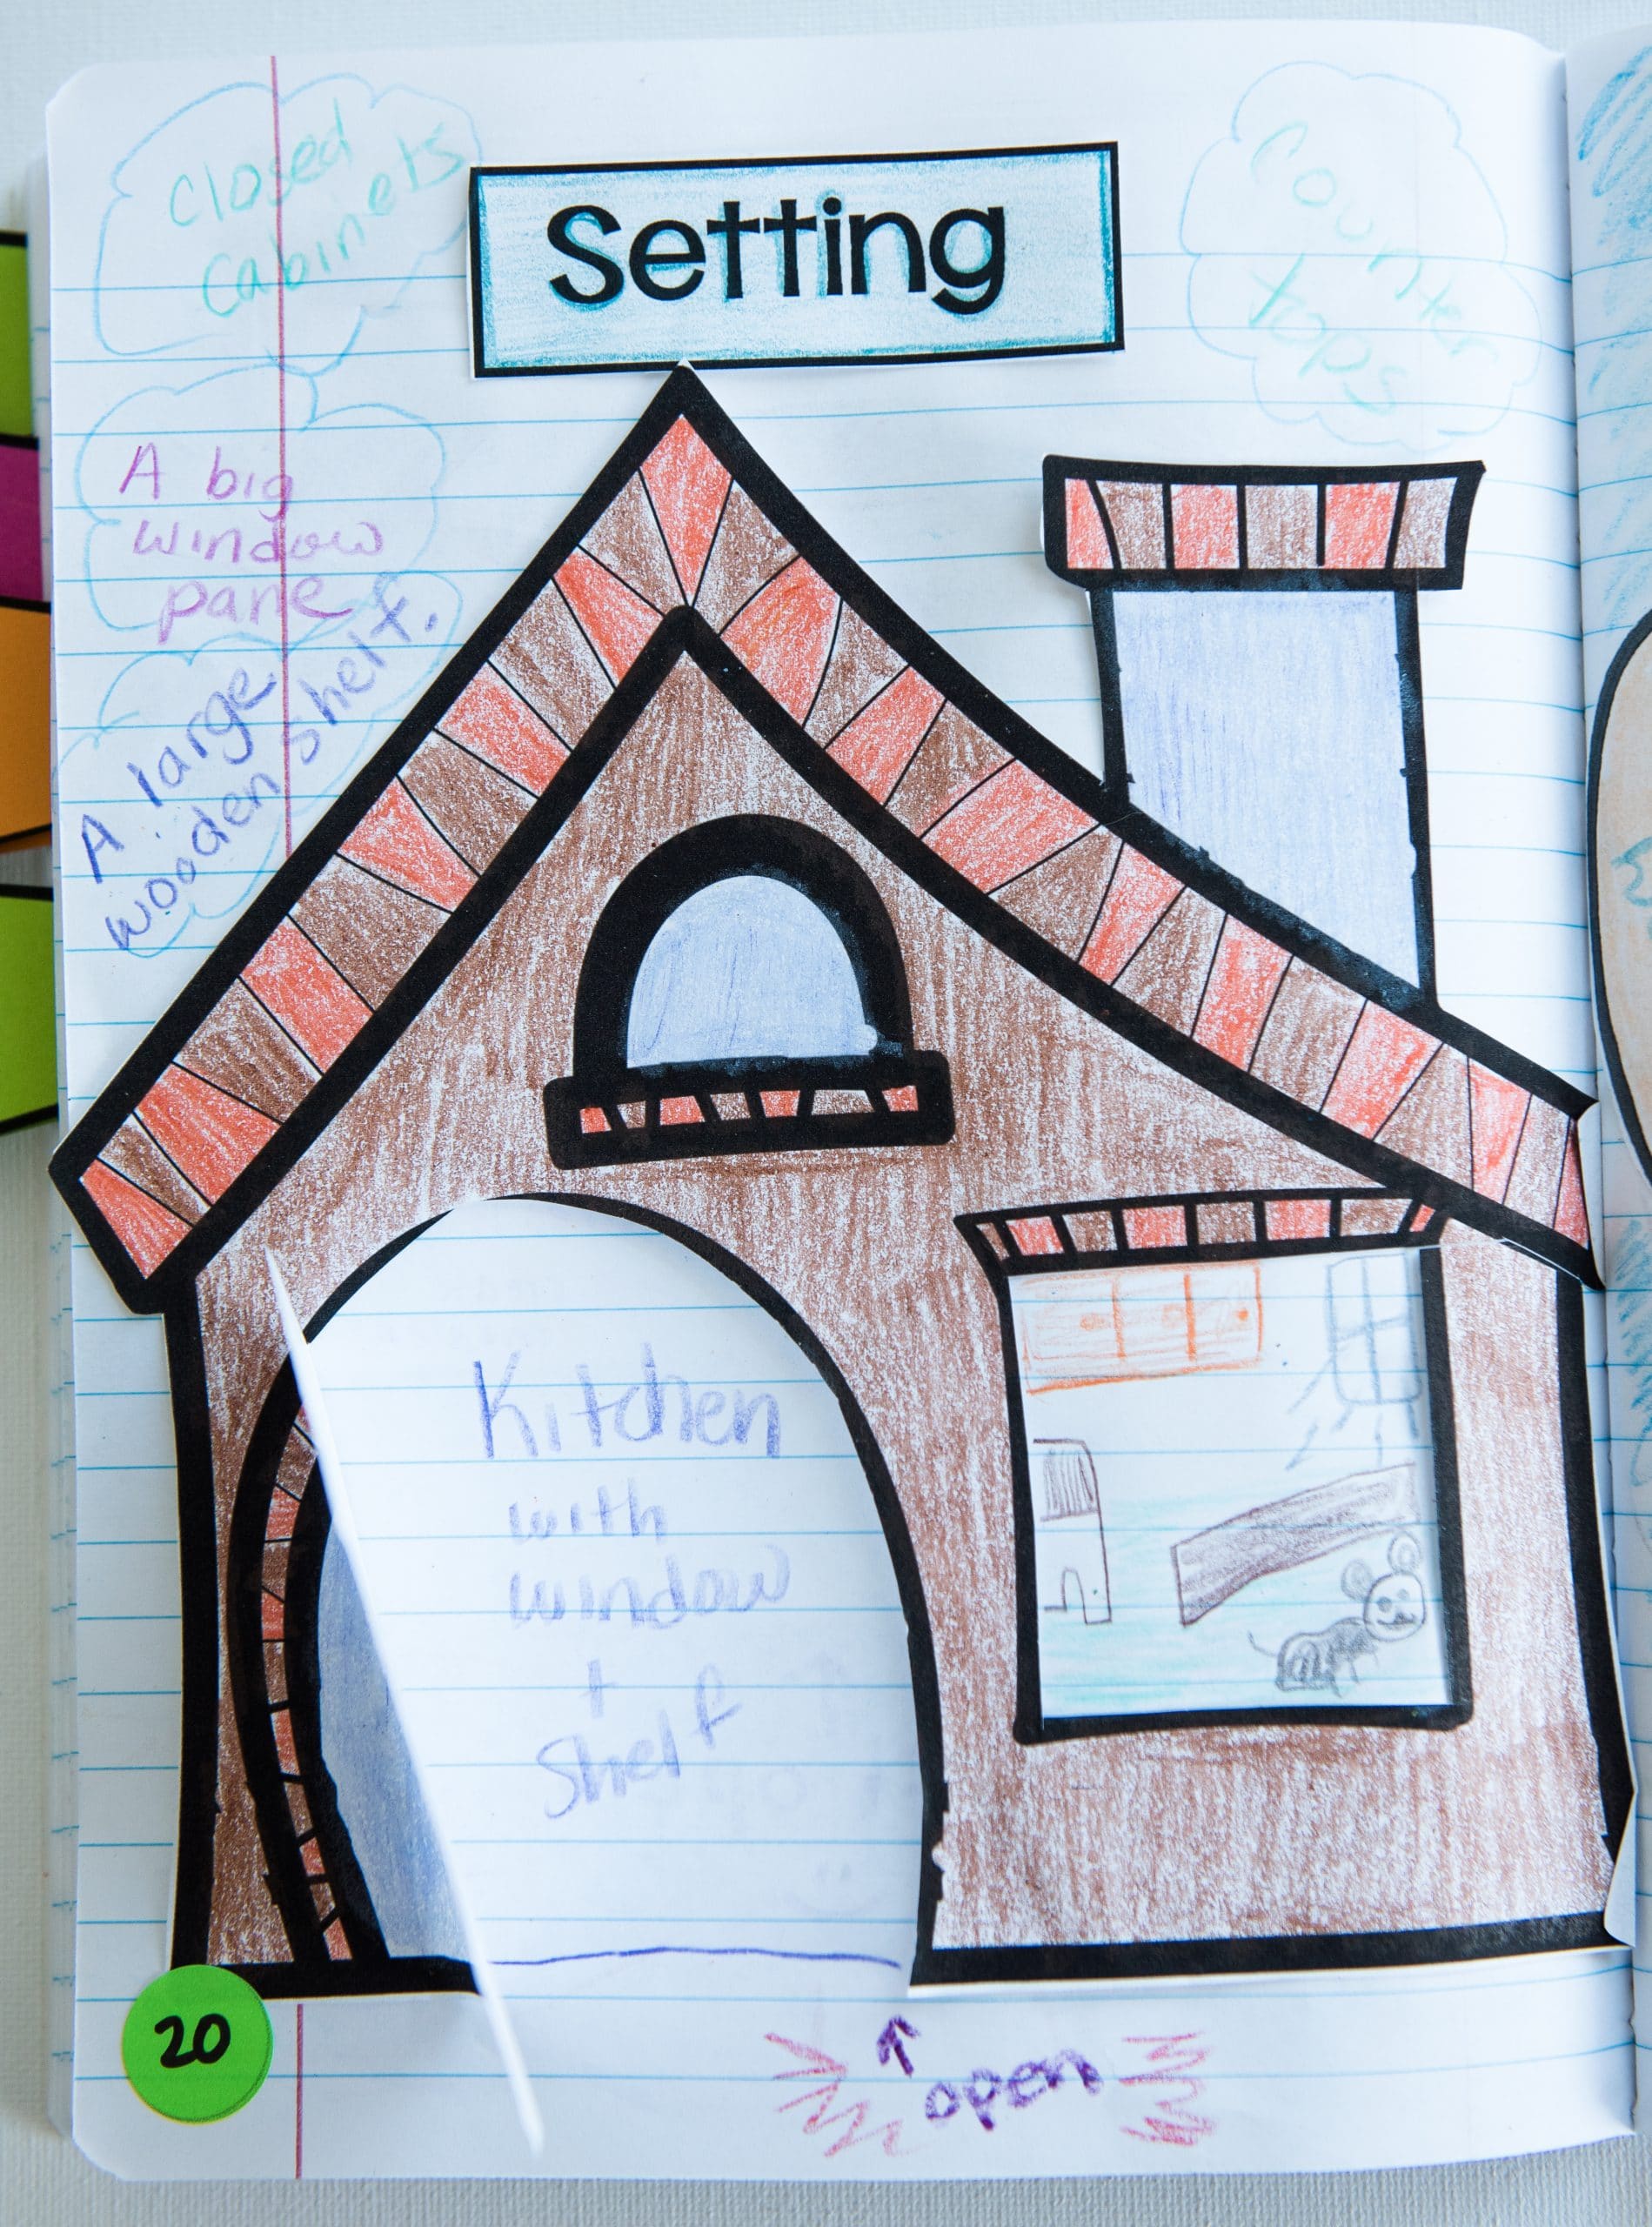 closed
cabinets
Setting
Counter
tops
A big
window
pane
A large
wooden shelf.
Kitchen
with
window
+
Shelf
20
open